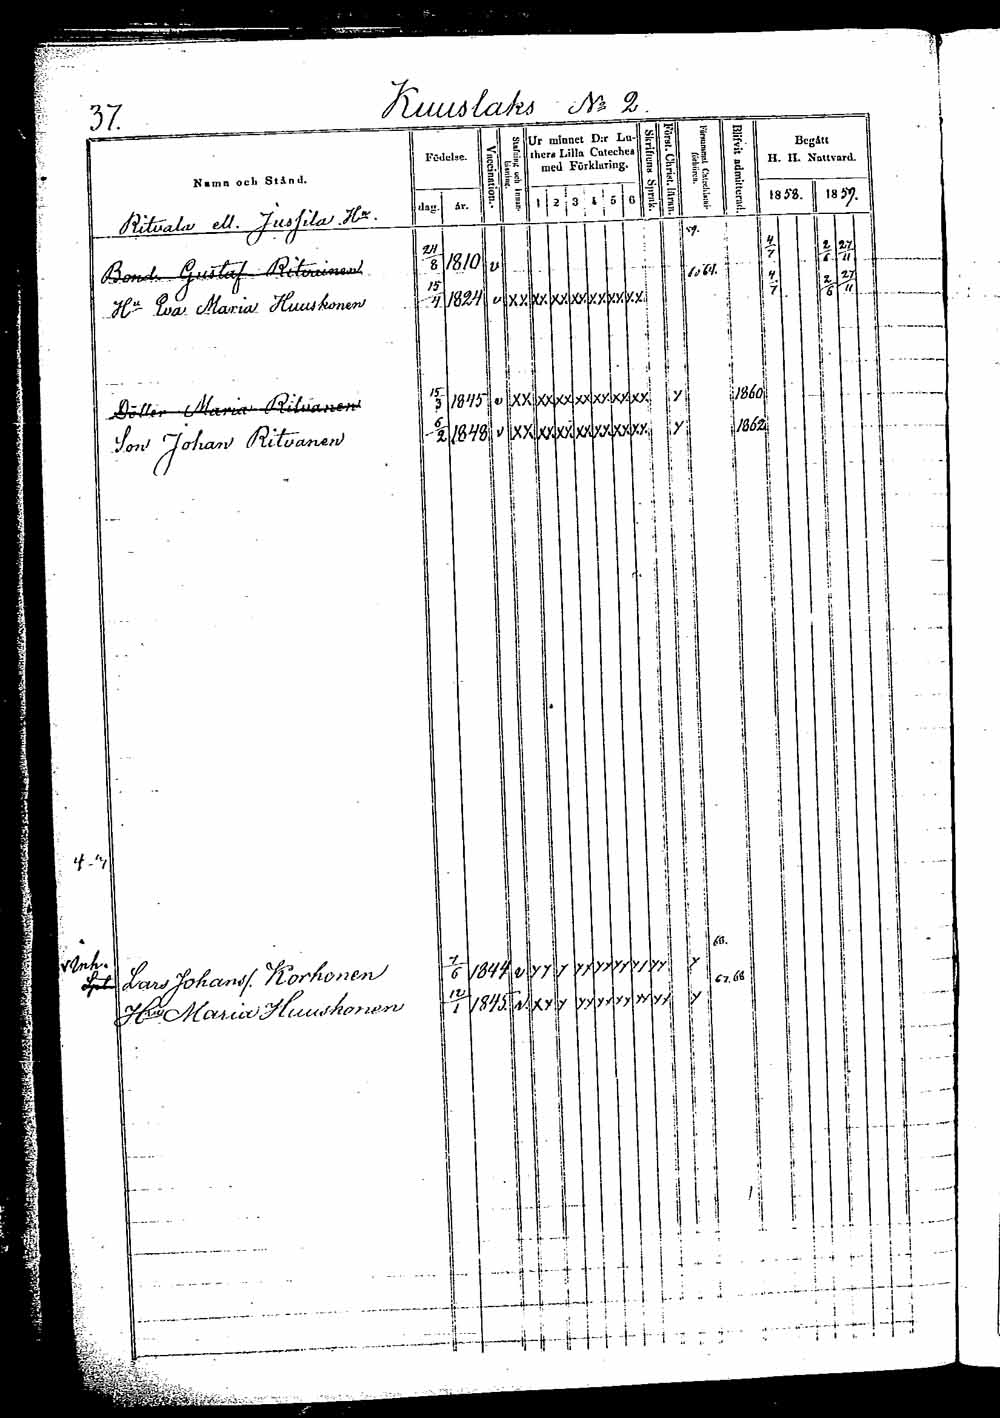 37.
Kuuslaks No 2.
Namn och Stånd.
Födelse.
dag. år.
Vaccination.
Stafning och Innanläsning.
Ur minnet D:r Luthers Lilla Cateches med Förklaring.
1 2 3 4 5 6
Skriftens Språk.
Först. Christ. läran.
Blifvit admitterad.
Begått H. H. Nattvard.
1858. 1859.
Ritvala ell. Jussila Hn.
59.
Bond. Gustaf Ritvainen 24/8 1810 v 4/7 2/6 27/11
Hu Eva Maria Huuskonen 15/4 1824 v xx xx xx xx xx xx xx 60 64. 4/7 2/6 27/11
Dotter Maria Ritvanen 15/3 1845 v xx xx xx xx xx xx xx y 1860
Son Johan Ritvanen 6/2 1848 v xx xx xx xx xx xx xx y 1862
66.
Inh.
Lars Johanss. Korhonen 7/6 1844 v yy y yy yy yy yy yy y
Hu Maria Huuskonen 12/1 1845. v. xy y yy yy yy yy yy y 67. 68